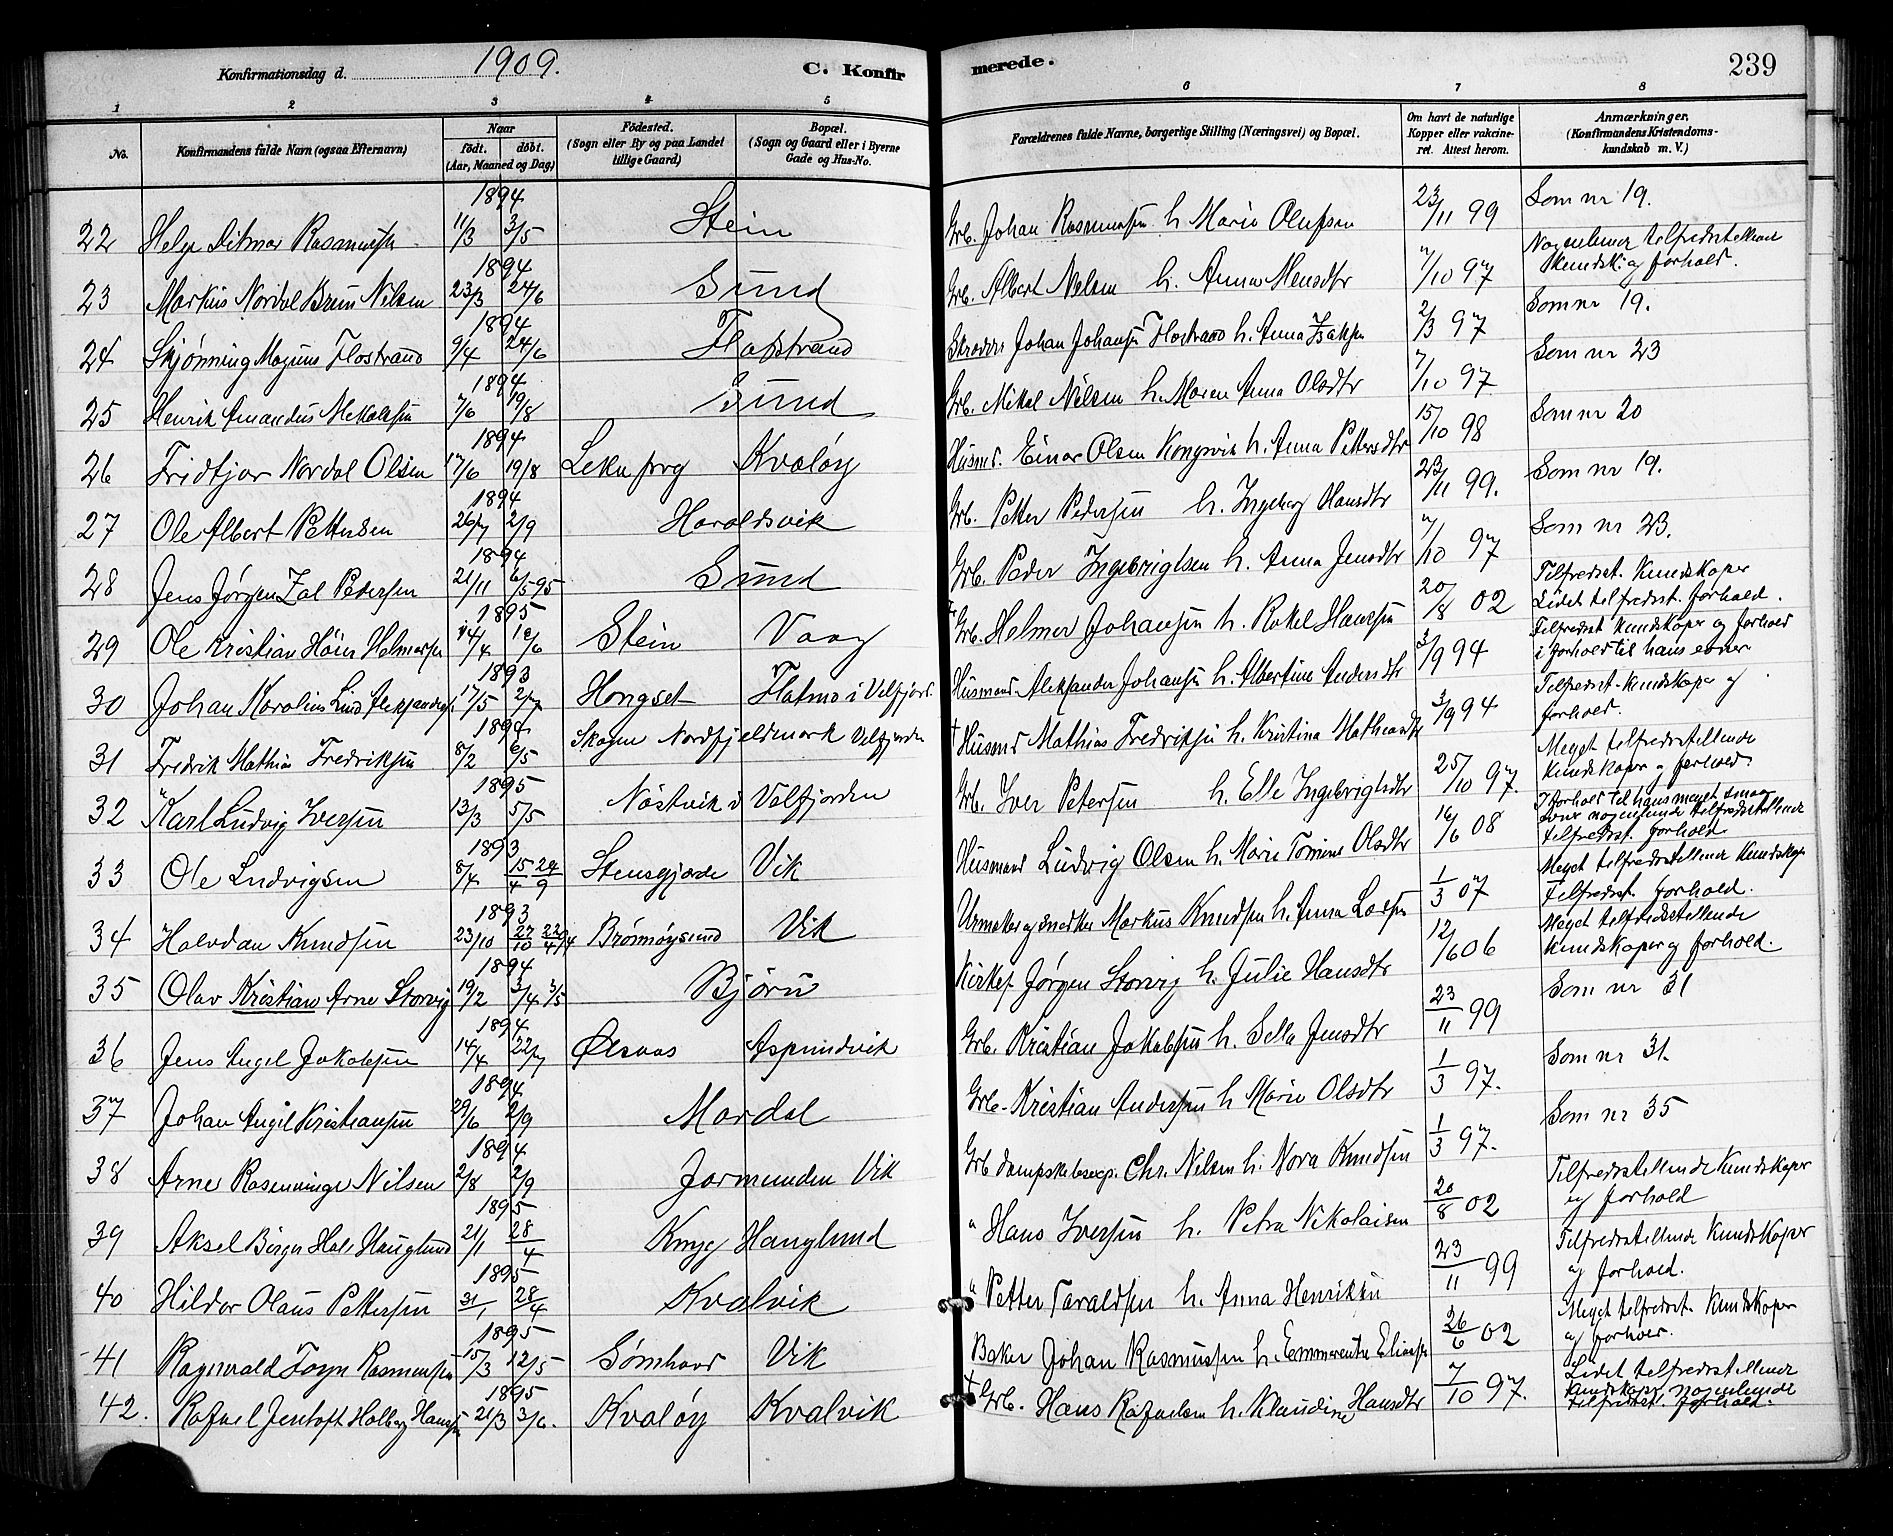 Konfirmationsdag d. 1909. C. Konfir merede. 239
1 2 3 4 5 6 7 8
No. Konfirmandens fulde Navn (ogsaa Efternavn) Naar født. døbt. (Aar, Maaned og Dag) Födested. (Sogn eller By og paa Landet tillige Gaard) Bopæl. (Sogn og Gaard eller i Byerne Gade og Hus-No. Forældrenes fulde Navne, borgerlige Stilling (Næringsvei) og Bopæl. Om havt de naturlige Kopper eller vakcineret. Attest herom. Anmærkninger. (Konfirmandens Kristendomskundskab m. V.)
22 Helge Ditmar Rasmussen 1894 11/3 3/5 Stein Grb. Johan Rasmussen h. Marie Olufsen 23/11 99 Som nr 19.
23 Markus Nordal Bruun Nilsen 1894 23/3 24/6 Sund Grb. Albert Nilsen h. Anna Hensdtr 7/10 97 Nogenlunde tilfredsstillende kundsk. og forhold.
24 Skjønning Magnus Flostrand 1894 9/4 24/6 Flostrand Johan Johansen Flostrand h. Anna Isaksen 2/3 97 Som nr 19.
25 Henrik Amandus Mikalsen 1894 7/6 19/8 Sund Grb. Mikal Nilsen h. Maren Anna Olsdtr 7/10 97 Som nr 23
26 Fridtjor Nordal Olsen 1894 17/6 19/8 Leka prg Kvaløy Husmd. Einar Olsen Kongsvik h. Anna Pettersdtr 15/10 98 Som nr 20
27 Ole Albert Pettersen 1894 26/7 2/9 Haroldsvik Grb. Petter Pedersen h. Ingeborg Hansdtr 23/11 99. Som nr 19.
28 Jens Jørgen Zal Pedersen 1894 21/11 6/5 95 Sund Grb. Peder Ingebrigtsen h. Anna Jensdtr 7/10 97 Som nr 23.
29 Ole Kristian Høier Helmersen 1895 14/4 /6 Stein Vaag Grb. Helmer Johansen h. Rakel Hansen 20/8 02 Tilfredsst. kundskaper Lidet tilfredsst. forhold.
30 Johan Karolius Lind Aleksandersen 1893 17/5 2/7 Hongset Hatmo i Velfjord. Husmand Aleksander Johansen h. Albertine Andersdtr 3/9 94 Tilfredsst kundskaper og forhold i forhold til hans evner
31 Fredrik Mathias Fredriksen 1894 8/2 6/5 Skogen Nordfjeldmark Velfjorden † Husmd Mathias Fredriksen h. Kristina Matheasdtr 3/9 94 Tilfredsst. kundskaper og forhold.
32 Karl Ludvig Iversen 1895 13/3 5/5 Nøstvik i Velfjorden Grb. Iver Petersen h. Elle Ingebrigtsdtr 25/10 97. Meget tilfredsstillende kundskaper og forhold
33 Ole Ludvigsen 1893 8/4 15/4 24/9 Stensgjorde Vik Husmand Ludvig Olsen h. Marie Tomine Olsdtr 16/6 08 I forhold til hans meget smaa evner nogenlunde tilfredsstillende tilfredsst. forhold
34 Halvdan Knudsen 1893 23/10 27/10 22/4 94 Brønnøysund Vik Urmaker og snedker Markus Knudsen h. Anna Larsen 1/3 07 Meget tilfredsstillende kundskap. Tilfredsst. forhold.
35 Olav Kristian Arne Storvig 1894 19/2 3/4 3/5 Bjørn Kirkes. Jørgen Storvig h. Julie Hansdtr 12/6 06 Meget tilfredsstillende kundskaper og forhold.
36 Jens Angel Jakobsen 1894 14/4 22/7 Ølsvas Aspundvik Grb. Kristian Jakobsen h. Sella Jensdtr 23/11 99 Som nr 31
37 Johan Angel Kristiansen 1894 29/6 2/9 Mardal Grb. Kristian Andersen h Marie Olsdtr 1/3 97. Som nr 31.
38 Arne Rosenvinge Nilsen 1894 2/8 2/9 Jormunden Vik Grb dampskibsexp. Chr. Nilsen h. Nora Knudsen 1/3 97. Som nr 35
39 Aksel Birger Hals Hauglund 1895 21/1 28/4 Knyg Hauglund " Hans Iversen h. Petra Nikolaisen 20/8 02 Tilfredsstillende kundskaper og forhold
40 Hildor Olaus Pettersen 1895 31/1 28/4 Kvalvik " Petter Taraldsen h. Anna Henriksen 23/11 99 Tilfredsstillende kundskaper og forhold.
41 Ragnvald Rasmussen 1895 15/3 12/5 Sømhovd Vik Baker Johan Rasmussen h. Emmerentse Eliassen 26/6 02 Meget tilfredsst. kundskaper og forhold.
42. Rafael Jentoft Holberg Hansen 1895 21/3 3/6. Kvaløy Kvalvik † Grb. Hans Rafaelsen h. Klaudine Hansdtr 7/10 97. Lidet tilfredsstillende kundskaper, nogenlunde tilfredsst. forhold.